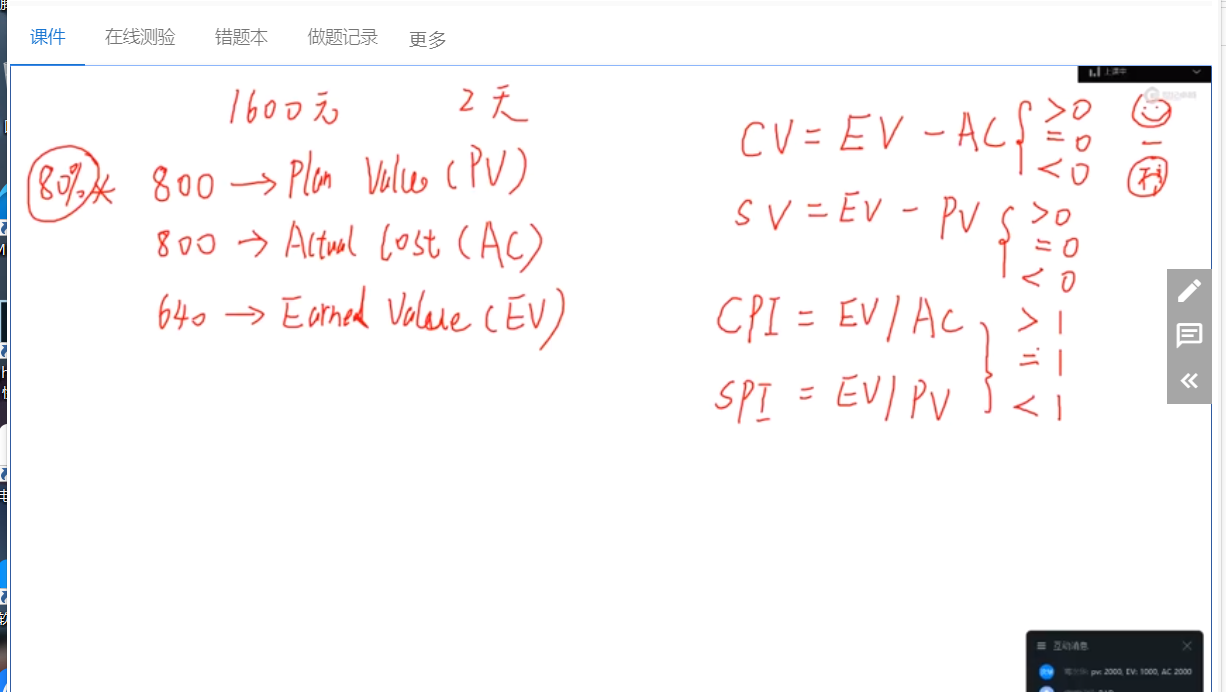 课件 在线测验 错题本 做题记录 更多
上课中
1600元 2天
80%× 800 → Plan Value (PV)
800 → Actual Cost (AC)
640 → Earned Value (EV)
CV = EV - AC { >0
=0 一
<0
SV = EV - PV { >0
=0
<0
CPI = EV/AC } >1
=1
SPI = EV/PV <1
互动消息
pv: 2000, EV: 1000, AC 2000